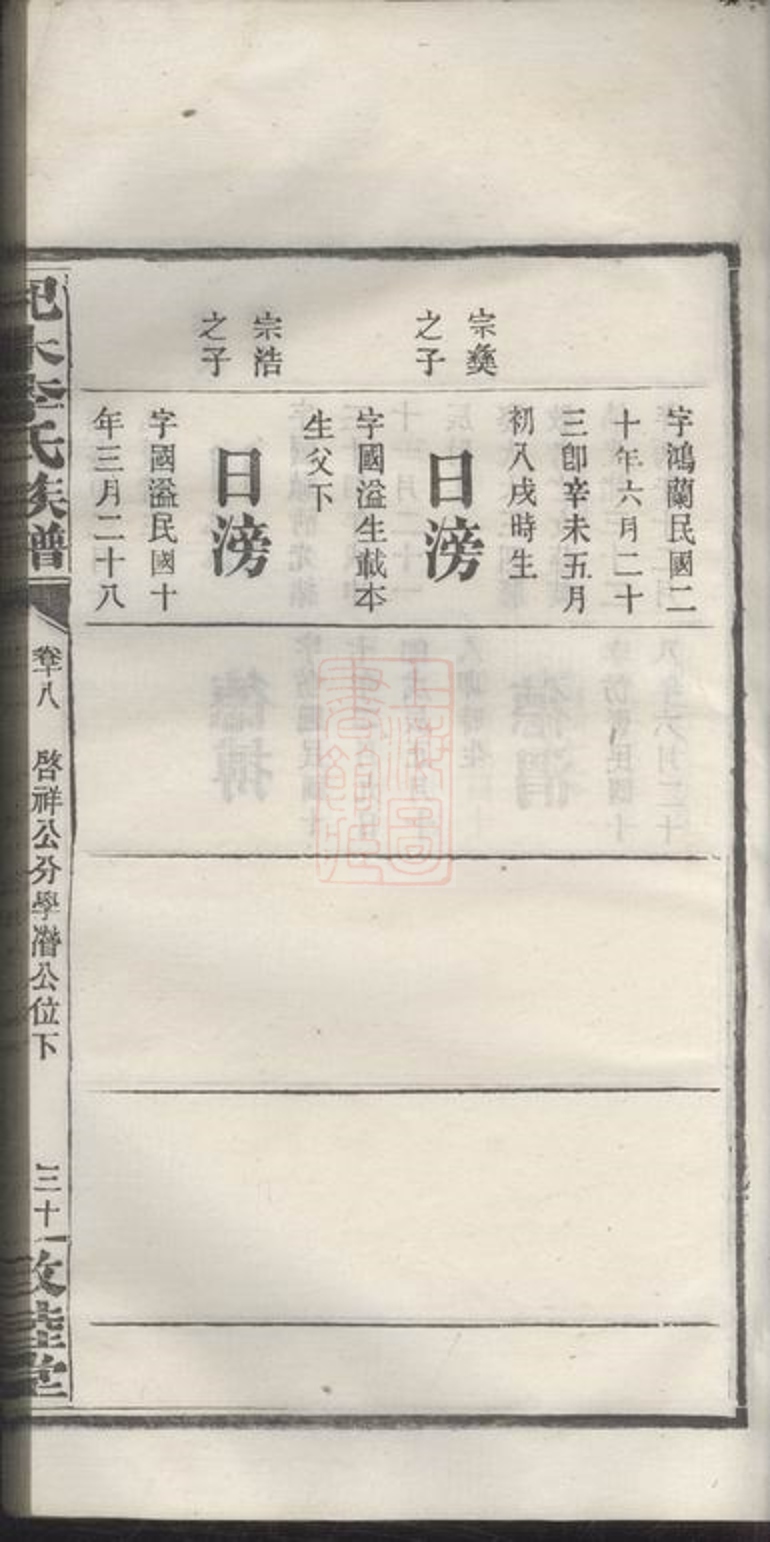 宗彜
之子
宗浩
之子
字鴻蘭民國二
十年六月二十
三卽辛未五月
初八戌時生
日滂
字國溢生載本
生父下
日滂
字國溢民國十
年三月二十八
氏族譜
卷十八
啓祥公分學濳公位下
三十一